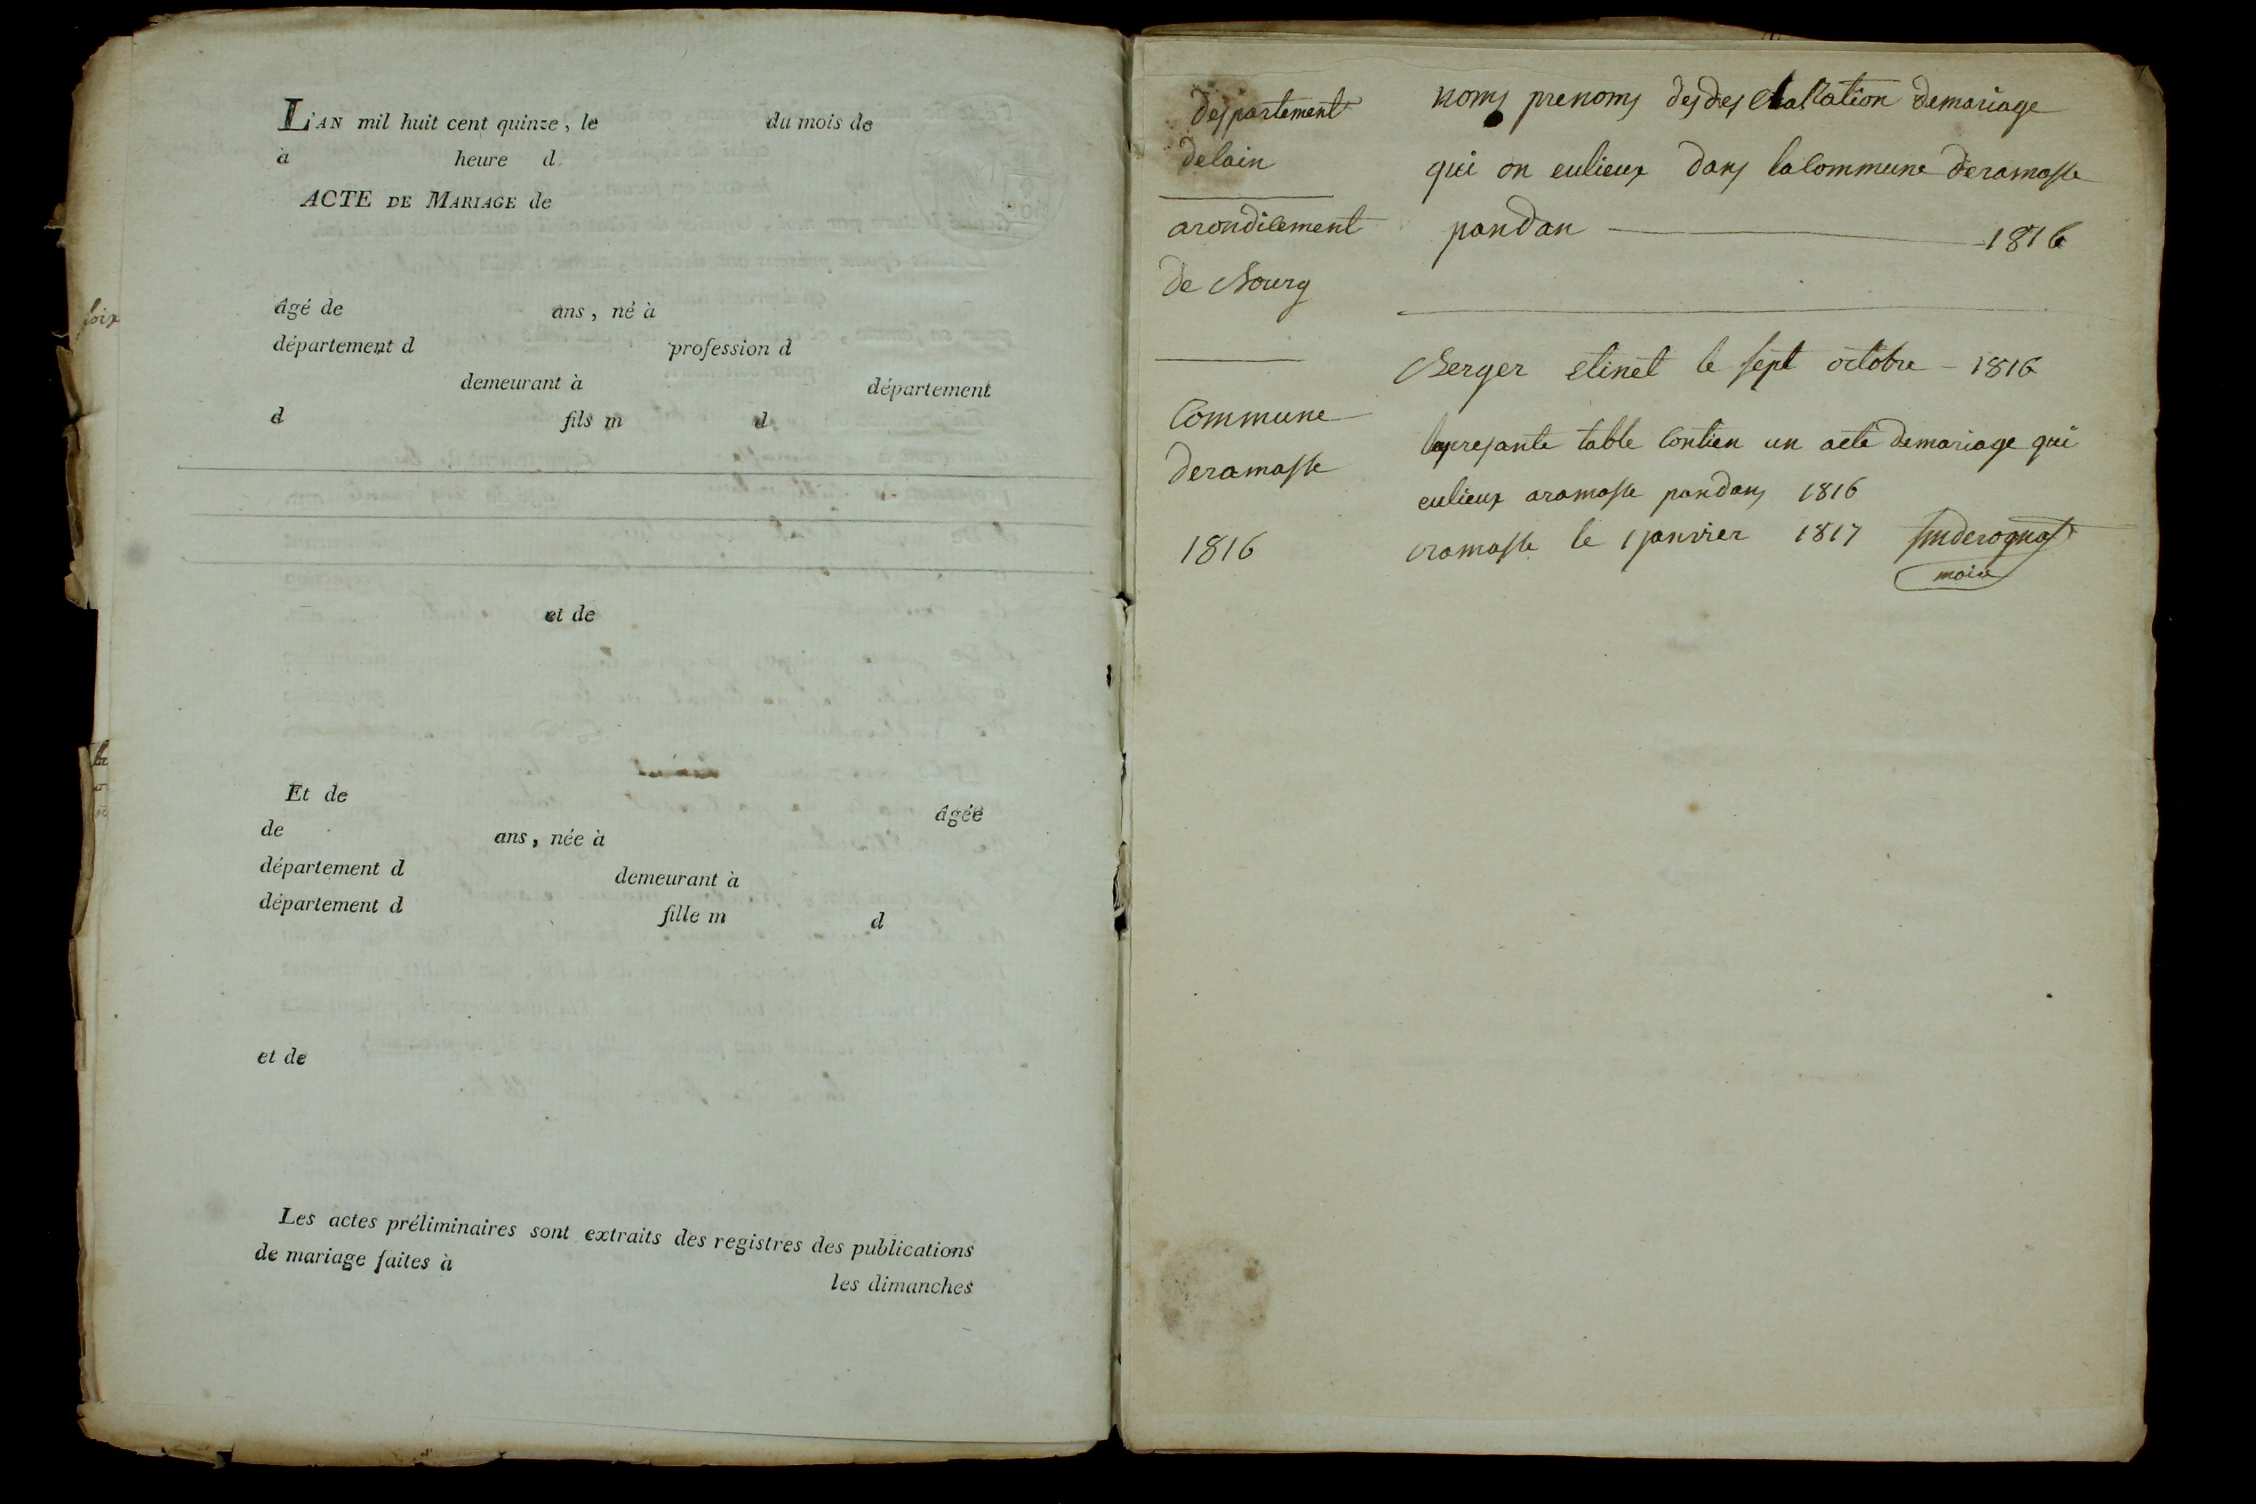 L'AN mil huit cent quinze, le du mois de
à heure d
ACTE DE MARIAGE de
âgé de ans, né à
département d profession d
demeurant à département
d fils m d
et de
Et de âgée
de ans, née à
département d demeurant à
département d fille m d
et de
Les actes préliminaires sont extraits des registres des publications
de mariage faites à les dimanches
foix
departement
delain
arondisement
de Bourg
Commune
deramasse
1816
noms prenoms des des Claration demariage
qui on eulieux dans la Commune deramasse
pandan 1816
Berger etinet le sept octobre - 1816
lapresante table Contien un acte demariage qui
eulieux aramasse pandans 1816
aramasse le 1 janvier 1817
maire